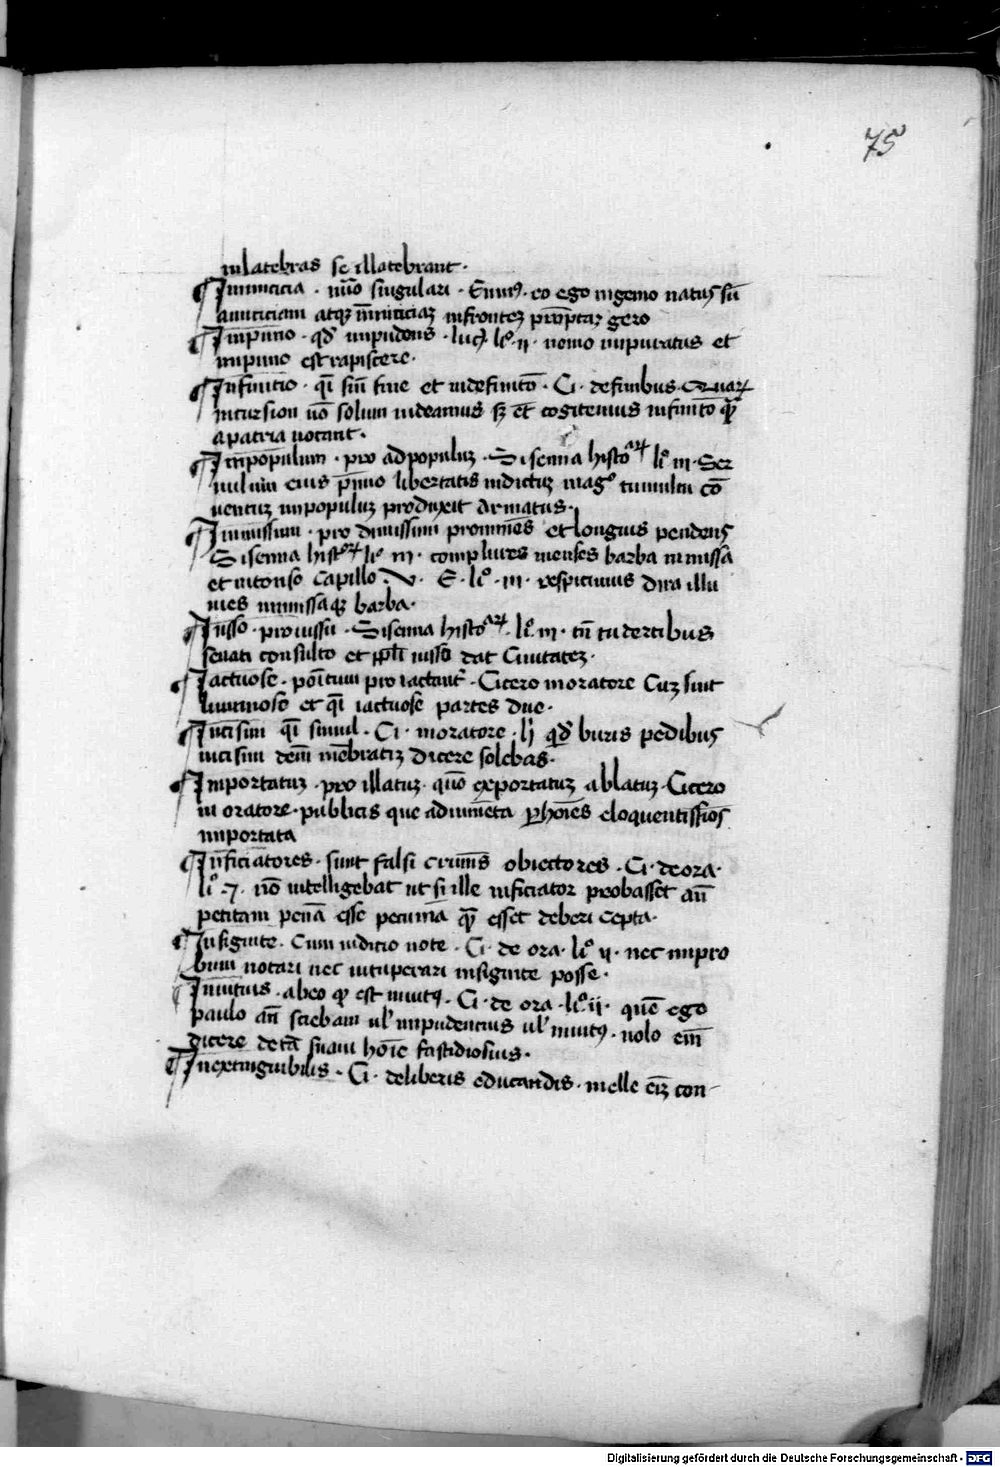 75
inlatebras se illatebrant·
¶Inimicicia· nūo singulari· Enniꝰ· eo ego ingenio natuꝫ sū
amiciciam atqꝫ inimiciciaꝫ infronteꝫ prōptaꝫ gero
¶Impūno· qd̄ impudens· luciꝰ· li°· ij· nomo impuratus et
impuno est rapistere·
¶Infinitio· qͥ sin̄ fine et indefinitō· Ci· definibus· Quaꝝ
incursion nō solum uideamus sꝫ et cogitemus infinitō q̄
apatria uocant·
¶Inpopulum· pro adpopuluꝫ· Sisenna histoaꝝ li° iii· Ser
uulum eius p̄imo libertatis indictuꝫ mag° tumultu cō
uentuꝫ inpopuluꝫ produxit armatus·
¶Inmissum· pro dimissum prominēs et longius pendenꝫ
Sisenna histoꝝ li° iii· complures menses barba inmissa
et intonso capillo V· E· li°· iii· respicimus dira illu
uies inmissaqꝫ barba·
¶Iusso· pro iussu· Sisenna histoaꝝ· li° iii· tn̄ tudertibus
senati consulto et pp̄li iusso dat Ciuitateꝫ·
¶Iactuose· poītum pro iactant̄· Cicero in oratore Cuꝫ sint
luminose et qͥ iactuose partes due·
¶Incisim qͥ simul· Ci· in oratore· lꝫ qd̄ buris pedibus
incisim dein̄ mēbratiꝫ dicere solebas·
¶Importatuꝫ· pro illatuꝫ· quō exportatuꝫ ablatuꝫ· Cicero
in oratore· publicis que adiumēta ꝑ hoīes eloquentissīos
importata
¶Inficiatores· sunt falsi crimīs obiectores· Ci· de ora·
li° ⁊· nō intelligebat ut si ille inficiator probasset an̄
petitam penā esse pecunīa q̄ esset deberi cepta·
¶Insignite· Cum inditio note· Ci· de ora· li° ij· nec impro
bum notari nec uituperari insignite posse·
¶Inuitus· abeo qͩ est inuitꝰ· Ci· de ora· li°· ij· quē ego
paulo an̄ sciebam ul̄ impudentius ul̄ inuitꝰ· nolo eī
dicere detā suaui hoīe fastidiosius·
¶Inextinguibilis· Ci· deliberis educandis· inelle eiꝫ con-
Digitalisierung gefördert durch die Deutsche Forschungsgemeinschaft - DFG